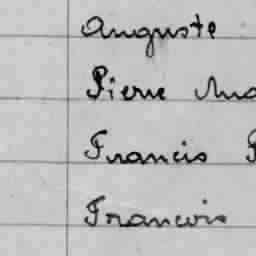 Auguste
Pierre
Francis
Francois